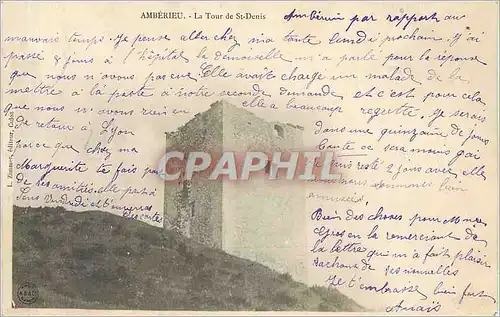 AMBÉRIEU. - La Tour de St-Denis
Ambérieu par rapport au
mauvais temps. Je pense aller chez ma tante lundi prochain. J'ai
passé 2 jours à l'hôpital la demoiselle m'a parlé pour la réponse
que nous n'avons pas eue. Elle avait chargé un malade de la
mettre à la poste à notre seconde demande et c'est pour cela
que nous n'avons rien eu elle a beaucoup regretté, je serais
de retour à Lyon dans une quinzaine de jours
parce que chez ma tante ce sera moins gai
Marguerite te fais par je suis resté 2 jours avec elle
de ses amitiés elle part à nous nous sommes bien
Sens Vendredi et t'enverra amusées.
des cartes
Bien des choses pour Mme
Gros en la remerciant de
la lettre qui m'a fait plaisir
sachant de ses nouvelles
Je t'embrasse bien fort
Anaïs
L. Zimmert, éditeur,
CPARAMA